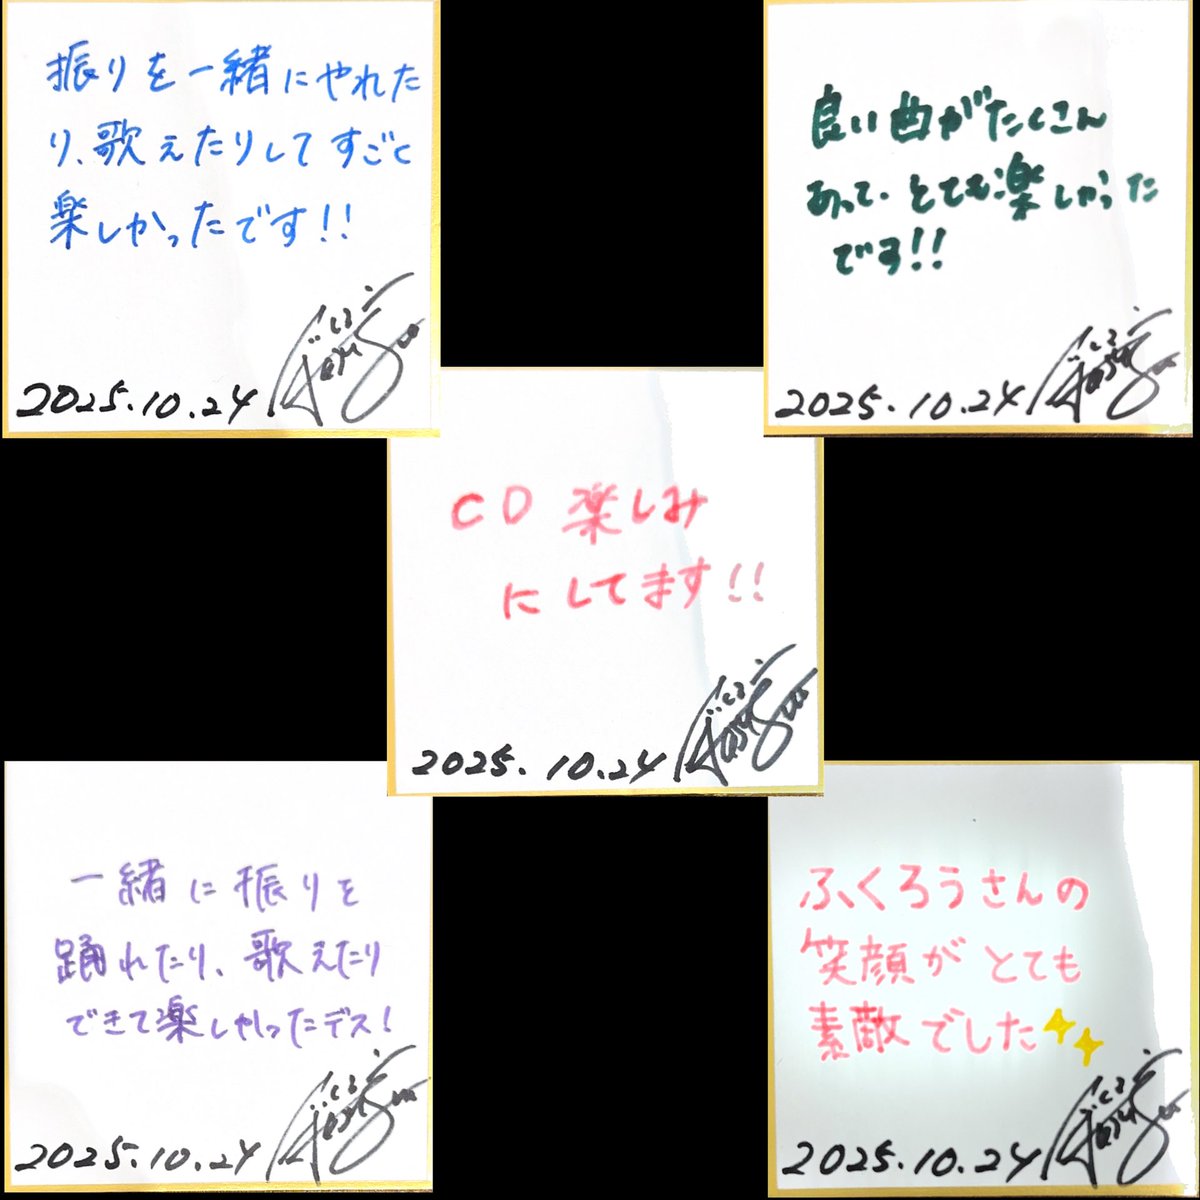 振りを一緒にやれた
り、歌えたりしてすごく
楽しかったです!!
2025.10.24
良い曲がたくさん
あって、とても楽しかった
です!!
2025.10.24
CD 楽しみ
にしてます!!
2025.10.24
一緒に振りを
踊れたり、歌えたり
できて楽しかったデス!
2025.10.24
ふくろうさんの
笑顔がとても
素敵でした
2025.10.24